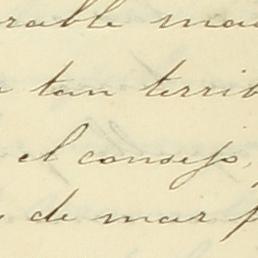 rable mas
tan terrib
el consejo,
de mar f